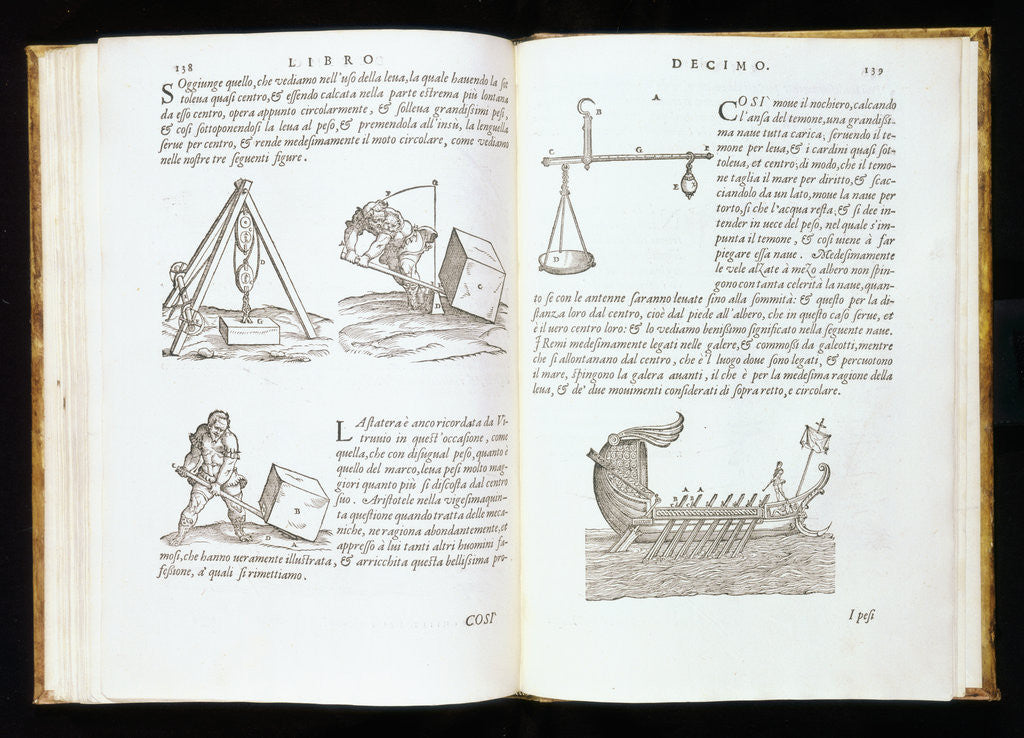 138
LIBRO
SOggiunge quello, che vediamo nell'uso della leua, la quale hauendo la sot
toleua quasi centro, & essendo calcata nella parte estrema più lontana
da esso centro, opera appunto circolarmente, & solleua grandissimi pesi,
& cosi sottoponendosi la leua al peso, & premendola all'insù, la lenguella
serue per centro, & rende medesimamente il moto circolare, come vediamo
nelle nostre tre seguenti figure.
F
G
D
G
C
D
B
D
LA statera è anco ricordata da Vi-
truuio in quest'occasione, come
quella, che con disugual peso, quanto è
quello del marco, leua pesi molto mag-
giori quanto più si discosta dal centro
suo. Aristotele nella vigesimaquin-
ta questione quando tratta delle meca-
niche, ne ragiona abondantemente, et
appresso à lui tanti altri huomini fa-
mosi, che hanno veramente illustrata, & arricchita questa bellissima pro-
fessione, a' quali si rimettiamo.
COSI'
DECIMO.
139
A
B
C
G
F
E
D
COSI' moue il nochiero, calcando
l'ansa del temone, una grandissi-
ma naue tutta carica, seruendo il te-
mone per leua, & i cardini quasi sot-
toleua, et centro; di modo, che il temo-
ne taglia il mare per diritto, & scac-
ciandolo da un lato, moue la naue per
torto, si che l'acqua resta, & si dee in-
tender in uece del peso, nel quale s'im-
punta il temone, & cosi uiene à far
piegare essa naue. Medesimamente
le vele alzate à mezo albero non spin-
gono con tanta celerità la naue, quan-
to se con le antenne saranno leuate sino alla sommità: & questo per la di-
stanza loro dal centro, cioè dal piede all'albero, che in questo caso serue, et
è il uero centro loro: & lo vediamo benissimo significato nella seguente naue.
I Remi medesimamente legati nelle galere, & commossi da galeotti, mentre
che si allontanano dal centro, che è 'l luogo doue sono legati, & percuotono
il mare, spingono la galera auanti, il che è per la medesima ragione della
leua, & de' due mouimenti considerati di sopra retto, e circolare.
A A
I pesi